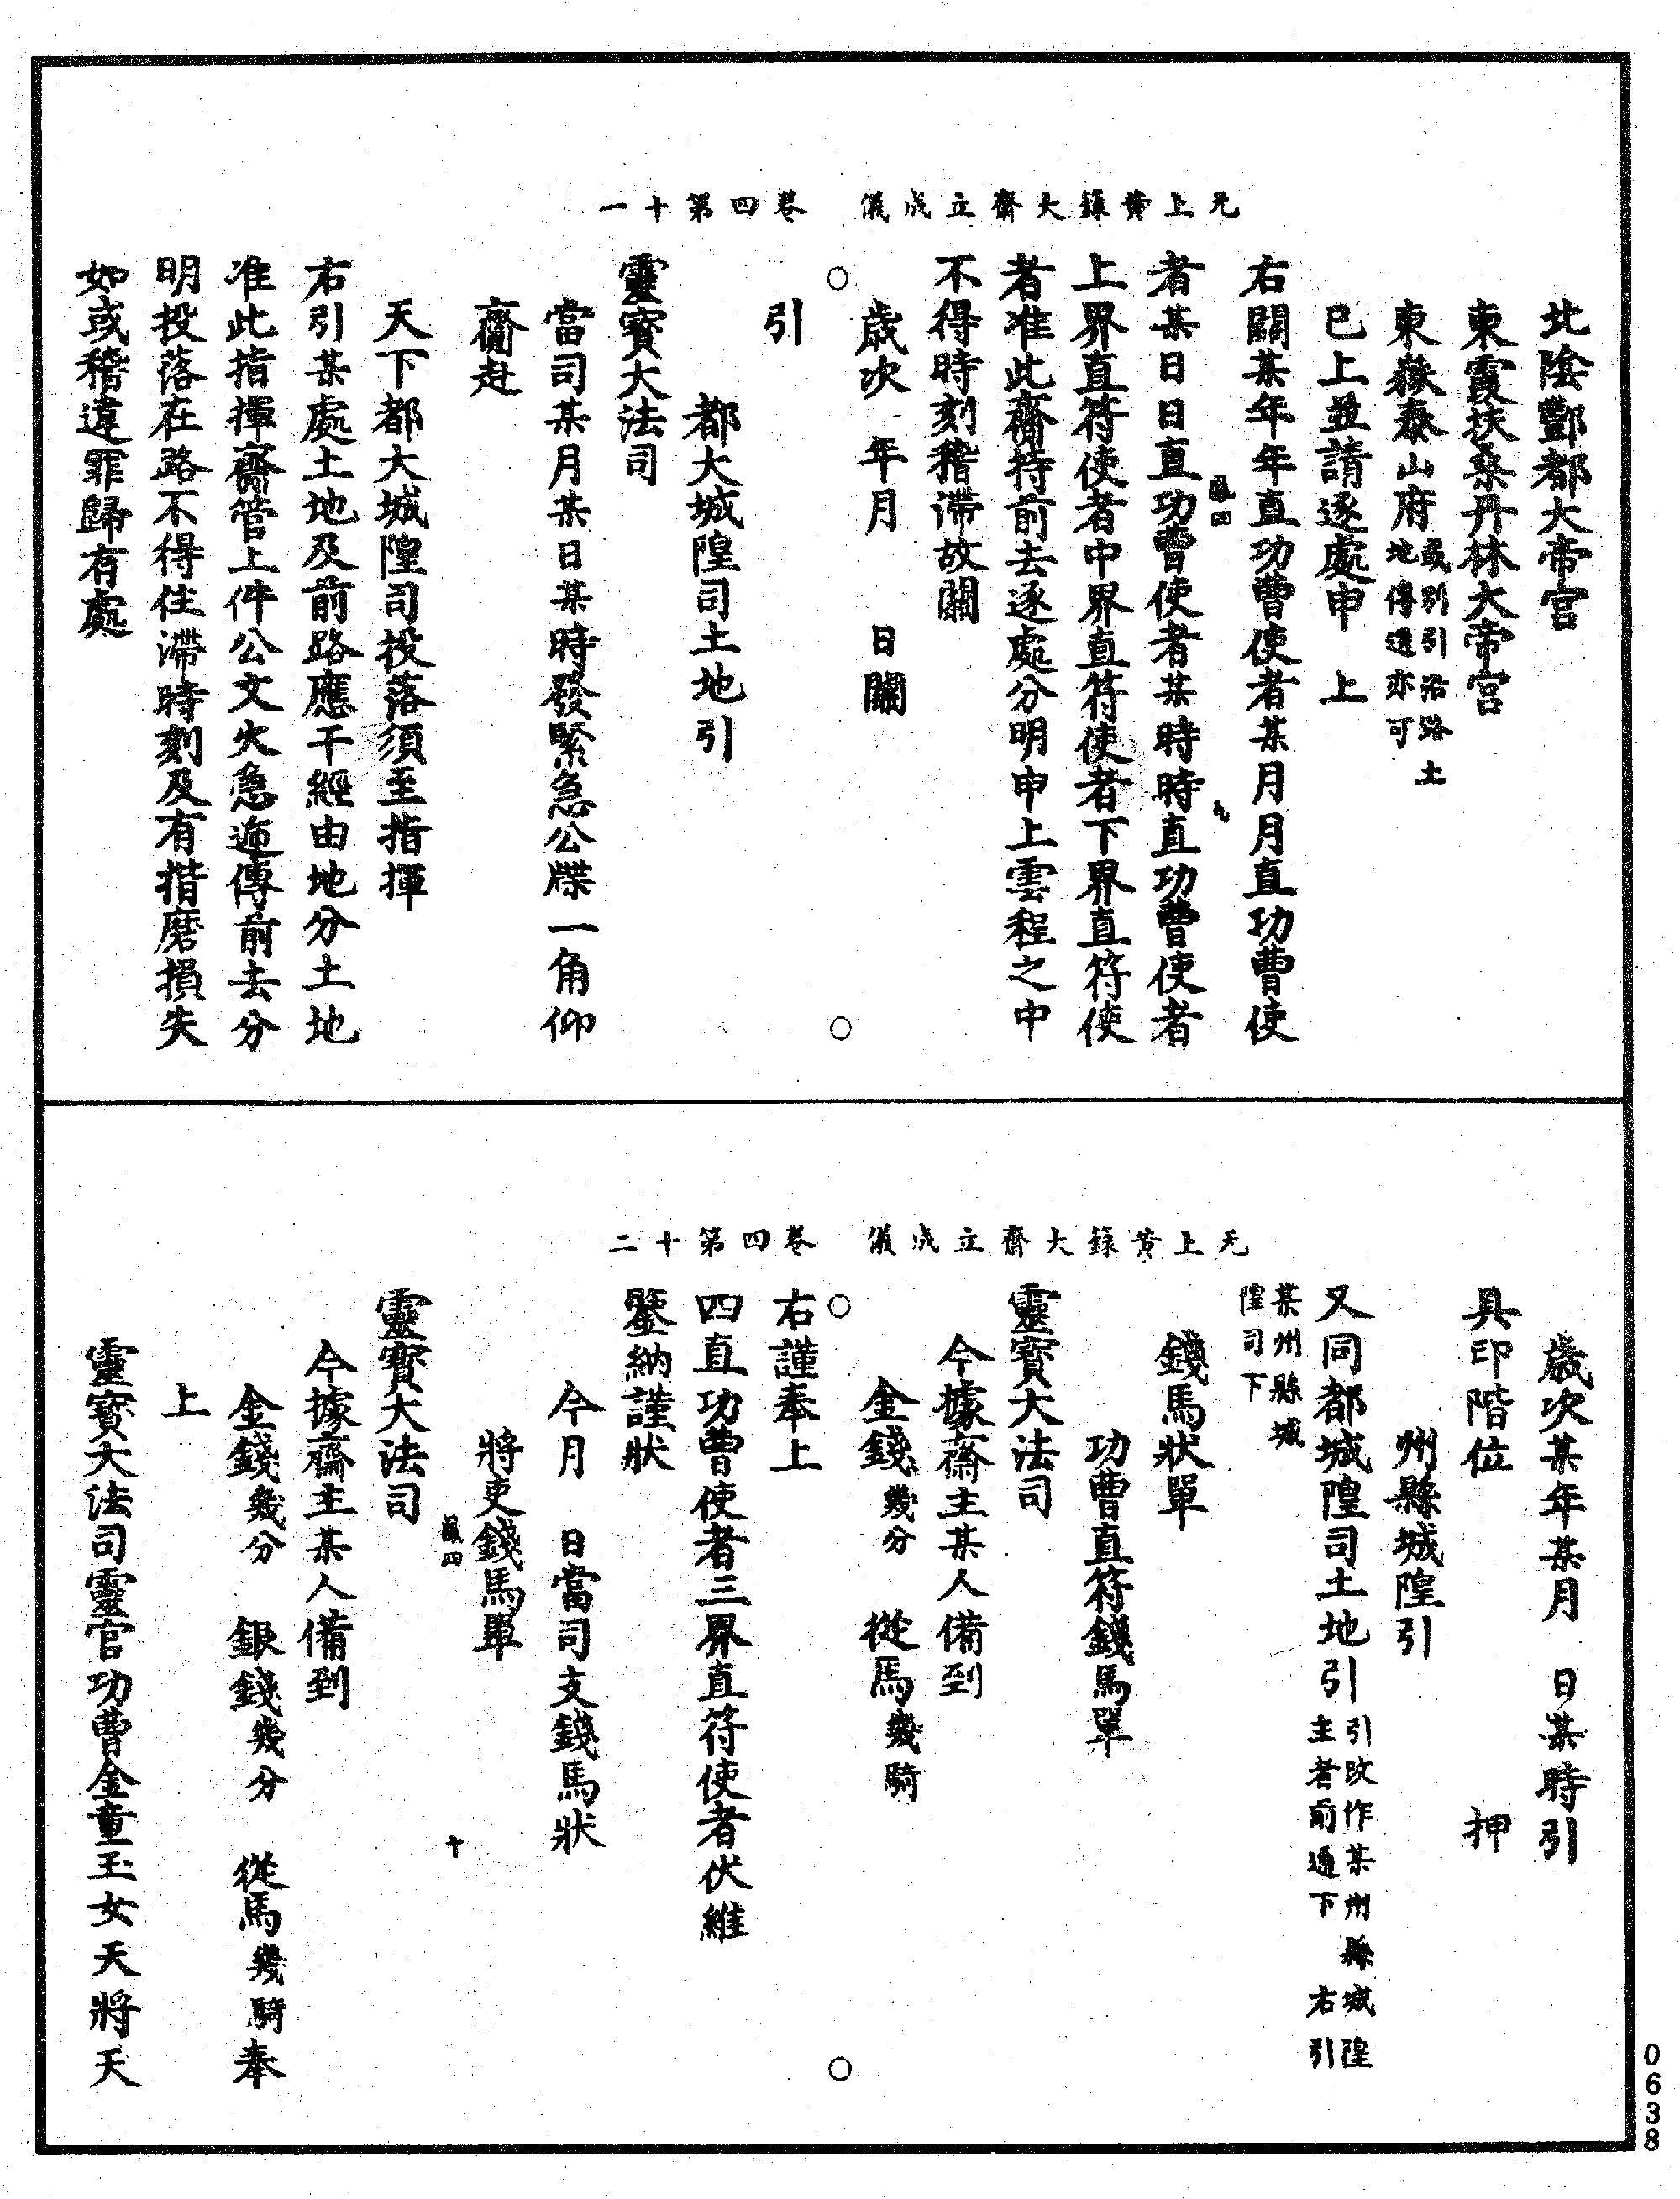 无上黄籙大齋立成儀　卷四第十一
北陰酆都大帝宫
東霞扶桑丹林大帝宫
東嶽泰山府或別引沿路土
地傳遞亦可
已上並請逐處申　上
右關某年年直功曹使者某月月直功曹使
者某日日直功曹使者某時時直功曹使者
上界直符使者中界直符使者下界直符使
者准此齋持前去逐處分明申上雲程之中
不得時刻稽滯故關
歲次　年月　　日關
引
都大城隍司土地引
靈寶大法司
當司某月某日某時發緊急公牒一角仰
齋赴
天下都大城隍司投落須至指揮
右引某處土地及前路應干經由地分土地
准此指揮齋管上件公文火急遞傳前去分
明投落在路不得住滯時刻及有揩磨損失
如或稽違罪歸有處
无上黄籙大齋立成儀　卷四第十二
歲次某年某月　日某時引
具印階位　　　押
州縣城隍引
又同都城隍司土地引引改作某州縣城隍
主者前通下　右引
某州縣城
隍司下
錢馬狀單
功曹直符錢馬單
靈寶大法司
今據齋主某人備到
金錢幾分　從馬幾騎
右謹奉上
四直功曹使者三界直符使者伏維
鑒納謹狀
今月　日當司支錢馬狀
將吏錢馬單
十
靈寶大法司
今據齋主某人備到
金錢幾分　銀錢幾分　從馬幾騎奉
上
靈寶大法司靈官功曹金童玉女天將天
0638